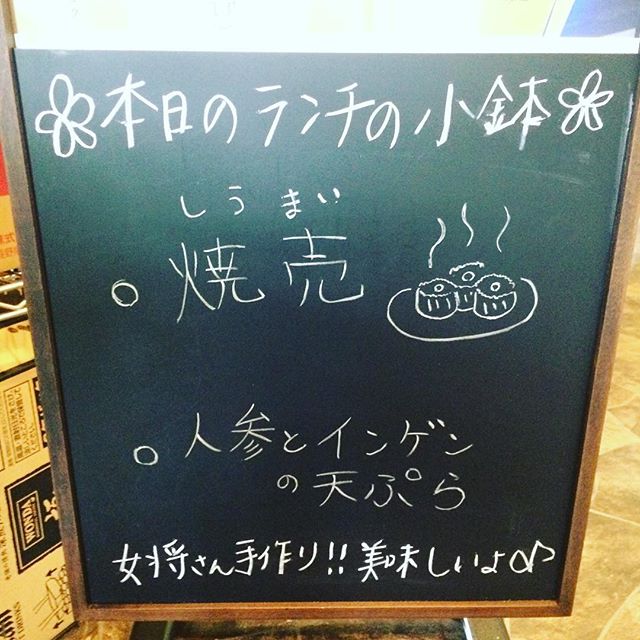 本日のランチの小鉢
しうまい
焼売
人参とインゲン
の天ぷら
女将さん手作り!!美味しいよ♪